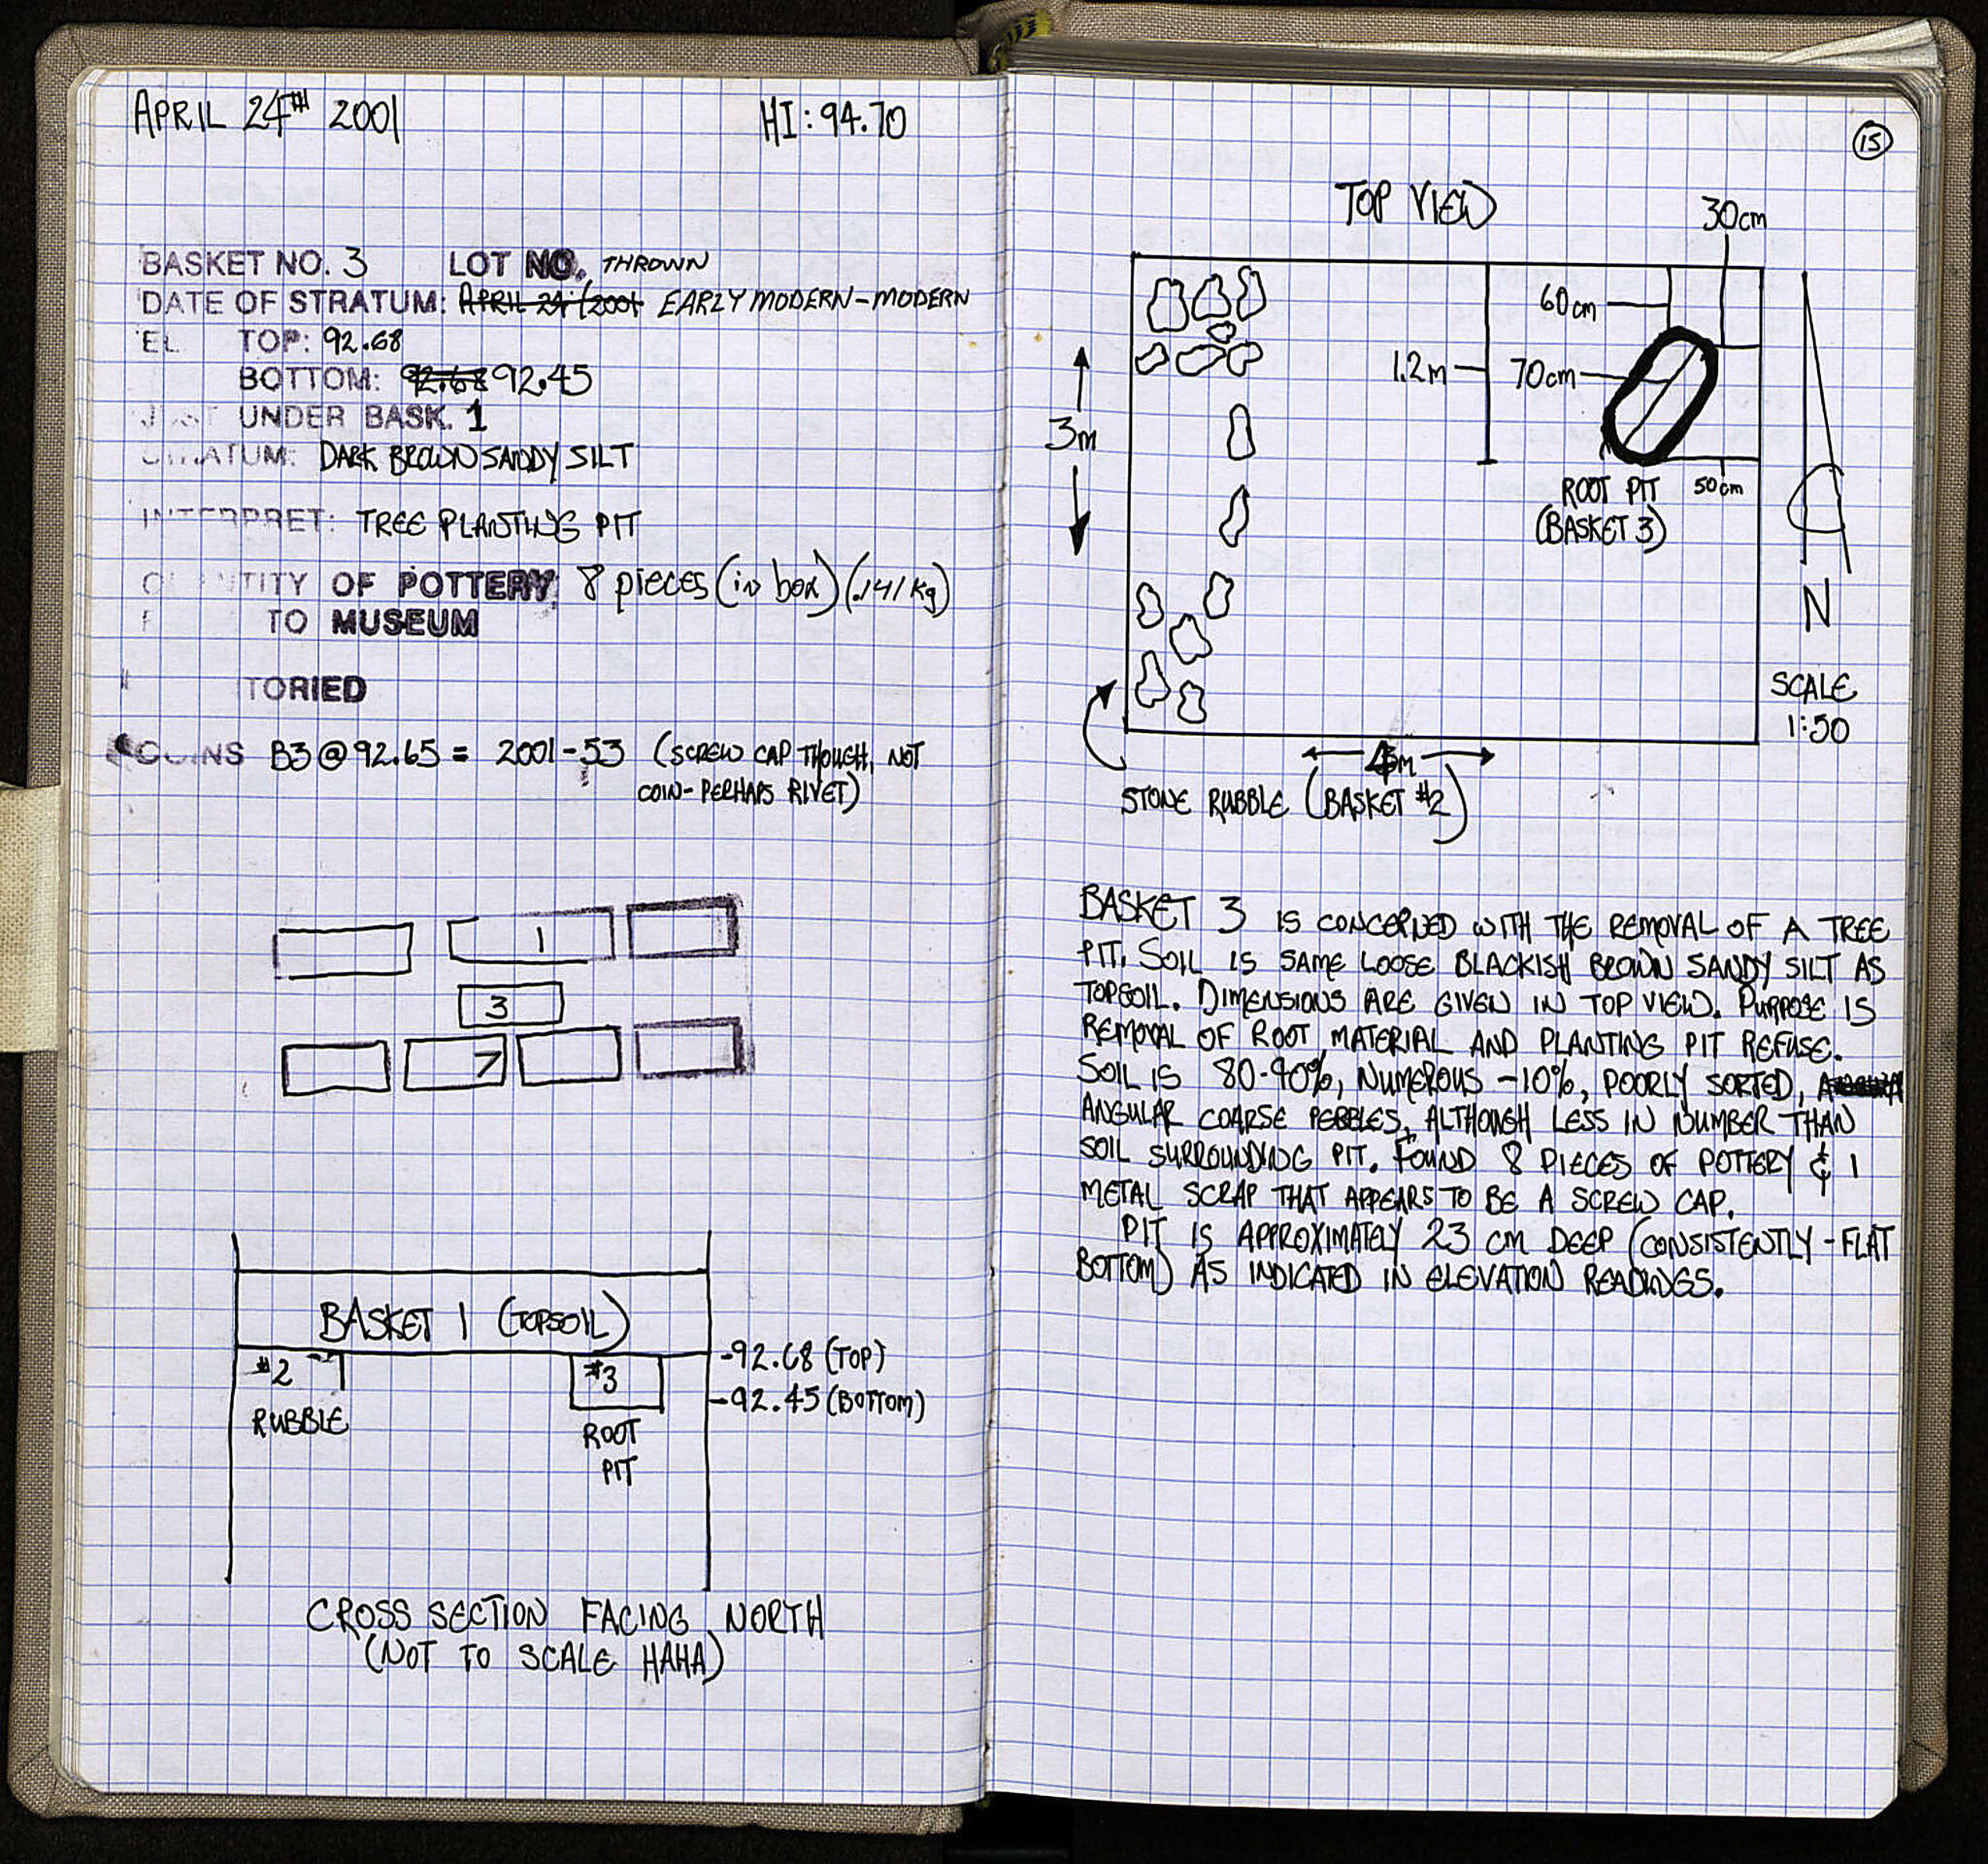 APRIL 24TH 2001 HI: 94.70
BASKET NO. 3 LOT NO. THROWN
DATE OF STRATUM: APRIL 24 /2001 EARLY MODERN-MODERN
EL TOP: 92.68
BOTTOM: 92.68 92.45
UNDER BASK. 1
STRATUM: DARK BROWN SANDY SILT
INTERPRET: TREE PLANTING PIT
QUANTITY OF POTTERY: 8 pieces (in box) (.141 kg)
TO MUSEUM
TORIED
COINS B3 @ 92.65 = 2001-53 (SCREW CAP THOUGH, NOT
COIN-PERHAPS RIVET)
1
3
7
BASKET 1 (TOPSOIL)
#2 #3 -92.68 (TOP)
-92.45 (BOTTOM)
RUBBLE
ROOT
PIT
CROSS SECTION FACING NORTH
(NOT TO SCALE HAHA)
15
TOP VIEW
30cm
60cm
1.2m 70cm
3m
ROOT PIT 50cm
(BASKET 3)
N
SCALE
1:50
m
STONE RUBBLE (BASKET #2)
BASKET 3 IS CONCERNED WITH THE REMOVAL OF A TREE
PIT. SOIL IS SAME LOOSE BLACKISH BROWN SANDY SILT AS
TOPSOIL. DIMENSIONS ARE GIVEN IN TOP VIEW. PURPOSE IS
REMOVAL OF ROOT MATERIAL AND PLANTING PIT REFUSE.
SOIL IS 80-90%, NUMEROUS -10%, POORLY SORTED,
ANGULAR COARSE PEBBLES, ALTHOUGH LESS IN NUMBER THAN
SOIL SURROUNDING PIT. FOUND 8 PIECES OF POTTERY & 1
METAL SCRAP THAT APPEARS TO BE A SCREW CAP.
PIT IS APPROXIMATELY 23 CM DEEP (CONSISTENTLY - FLAT
BOTTOM) AS INDICATED IN ELEVATION READINGS.